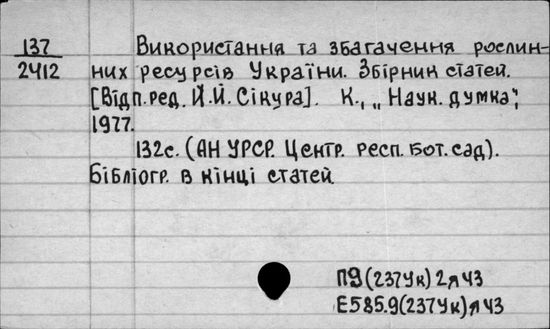 137
2412
Використання та збагачення рослин-
них ресурсів України. Збірник статей.
[Відп. ред. Й.Й. Сікура]. К., „Наук. думка",
1977.
132с. (АН УРСР. Центр. респ. бот. сад).
Бібліогр. в кінці статей.
П9(237Ук)2я43
Е585.9(237Ук)я43